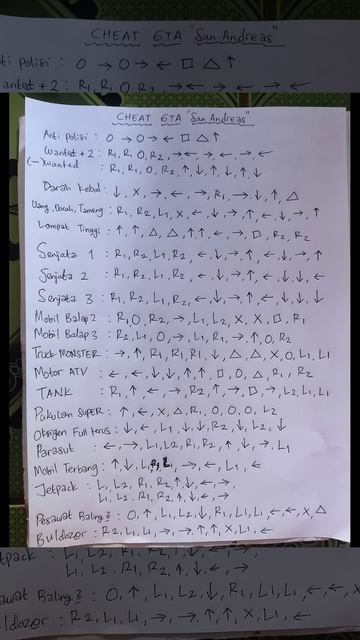 CHEAT GTA "San Andreas"
nti Polisi : O → O → ← □ △ ↑
CHEAT GTA "San Andreas"
Anti Polisi : O → O → ← □ △ ↑
Wanted + 2 : R1, R1, O, R2, → ← → ←, →, ←
(-) Wanted : R1, R1, O, R2, ↑, ↓, ↑, ↓, ↑, ↓
Darah Kebal : ↓, X, →, ←, →, R1, →, ↓, ↑, △
Uang, Darah, Tameng : R1, R2, L1, X, ←, ↓, →, ↑, ←, ↓, →, ↑
Lompat Tinggi : ↑, ↑, △, △, ↑, ↑, ←, →, □, R2, R2
Senjata 1 : R1, R2, L1, R2, ←, ↓, →, ↑, ←, ↓, →, ↑
Senjata 2 : R1, R2, L1, R2, ←, ↓, →, ↑, ←, ↓, ↓, ←
Senjata 3 : R1, R2, L1, R2, ←, ↓, →, ↑, ←, ↓, ↓, ↓
Mobil Balap 2 : R1, O, R2, →, L1, L2, X, X, □, R1
Mobil Balap 3 : R2, L1, O, →, L1, R1, →, ↑, O, R2
Truck MONSTER : →, ↑, R1, R1, R1, ↓, △, △, X, O, L1, L1
Motor ATV : ←, ←, ↓, ↓, ↑, ↑, □, O, △, R1, R2
TANK : R1, ↑, ←, →, R2, ↑, →, □, →, L2, L1, L1
Pukulan SUPER : ↑, ←, X, △, R1, O, O, O, L2
Oksigen Full terus : ↓, ←, L1, ↓, ↓, R2, ↓, L2, ↓
Parasut : ←, →, L1, L2, R1, R2, R2, ↑, ↓, →, L1
Mobil Terbang : ↑, ↓, L1, R1, L1, →, ←, L1, ←
Jetpack : L1, L2, R1, R2, ↑, ↓, ←, →,
L1, L2, R1, R2, ↑, ↓, ←, →
Pesawat Baling2 : O, ↑, L1, L2, ↓, R1, L1, L1, ←, ←, X, △
Buldozer : R2, L1, L1, →, →, ↑, ↑, X, L1, ←
L1, L2, R1, R2, ↑, ↓, ←, →
awat Baling2 : O, ↑, L1, L2, ↓, R1, L1, L1, ←, ←, X
ldozer : R2, L1, L1, →, →, ↑, ↑, X, L1, ←